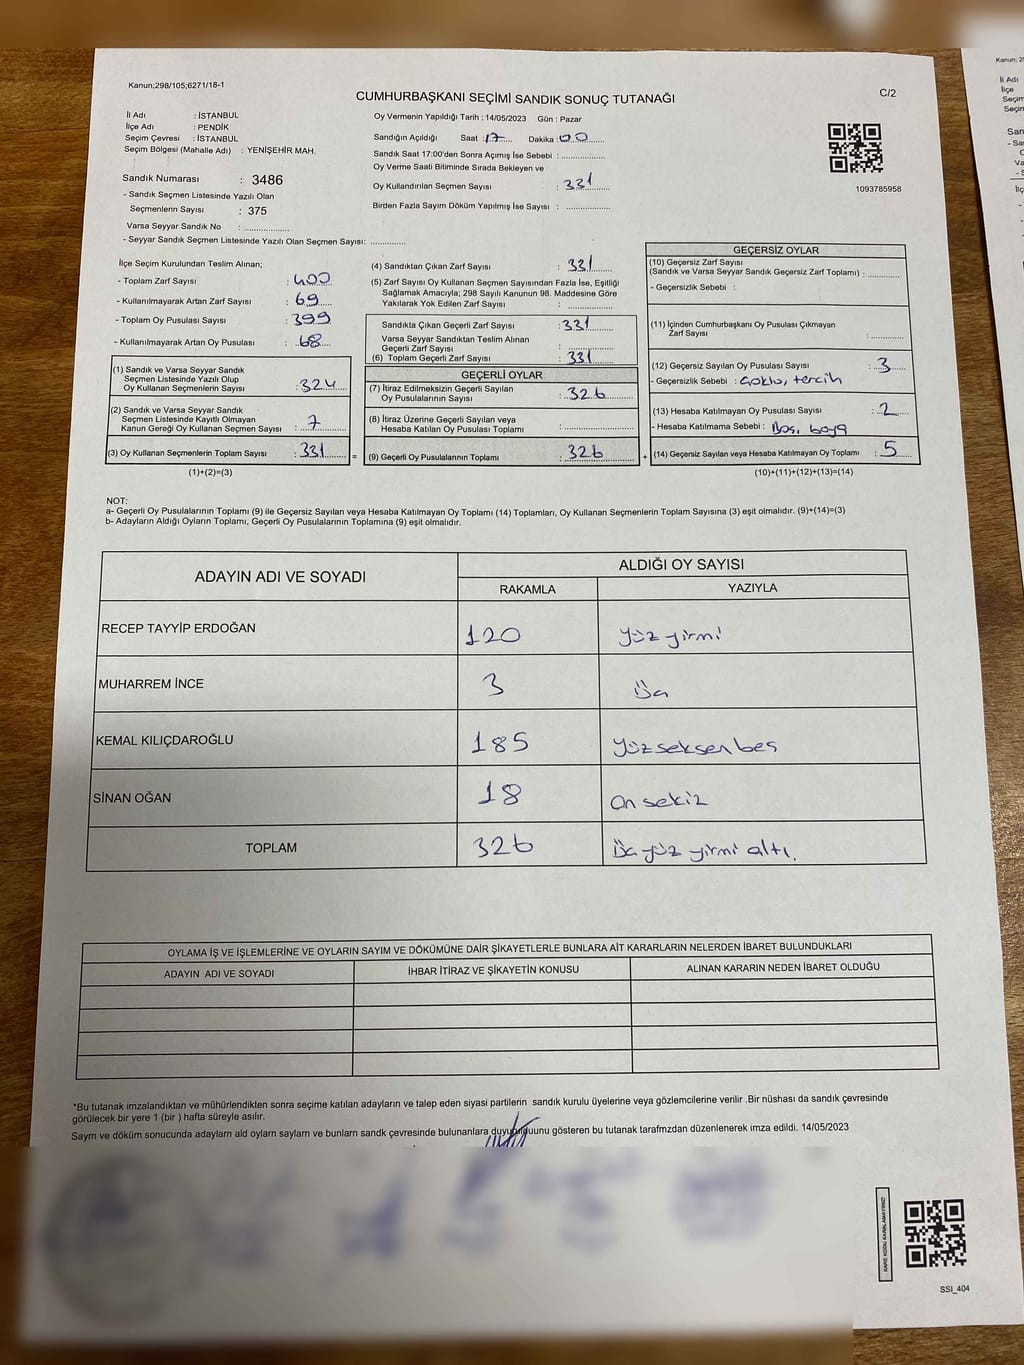 Kanun;298/105;6271/18-1
CUMHURBAŞKANI SEÇİMİ SANDIK SONUÇ TUTANAĞI
C/2
İli Adı : İSTANBUL
İlçe Adı : PENDİK
Seçim Çevresi : İSTANBUL
Seçim Bölgesi (Mahalle Adı) : YENİŞEHİR MAH.
Sandık Numarası : 3486
- Sandık Seçmen Listesinde Yazılı Olan
Seçmenlerin Sayısı : 375
Varsa Seyyar Sandık No : ..................
- Seyyar Sandık Seçmen Listesinde Yazılı Olan Seçmen Sayısı: ..............
Oy Vermenin Yapıldığı Tarih : 14/05/2023 Gün : Pazar
Sandığın Açıldığı Saat : 17 Dakika : 00
Sandık Saat 17:00'den Sonra Açımış İse Sebebi : ..................
Oy Verme Saati Bitiminde Sırada Bekleyen ve
Oy Kullandırılan Seçmen Sayısı : 331
Birden Fazla Sayım Döküm Yapılmış İse Sayısı : ..................
1093785958
İlçe Seçim Kurulundan Teslim Alınan;
- Toplam Zarf Sayısı : 400
- Kullanılmayarak Artan Zarf Sayısı : 69
- Toplam Oy Pusulası Sayısı : 399
- Kullanılmayarak Artan Oy Pusulası : 68
(1) Sandık ve Varsa Seyyar Sandık
Seçmen Listesinde Yazılı Olup
Oy Kullanan Seçmenlerin Sayısı : 324
(2) Sandık ve Varsa Seyyar Sandık
Seçmen Listesinde Kayıtlı Olmayan
Kanun Gereği Oy Kullanan Seçmen Sayısı : 7
(3) Oy Kullanan Seçmenlerin Toplam Sayısı : 331 =
(1)+(2)=(3)
(4) Sandıktan Çıkan Zarf Sayısı : 331
(5) Zarf Sayısı Oy Kullanan Seçmen Sayısından Fazla İse, Eşitliği
Sağlamak Amacıyla; 298 Sayılı Kanunun 98. Maddesine Göre
Yakılarak Yok Edilen Zarf Sayısı : ..................
Sandıkta Çıkan Geçerli Zarf Sayısı : 331
Varsa Seyyar Sandıktan Teslim Alınan
Geçerli Zarf Sayısı : ..................
(6) Toplam Geçerli Zarf Sayısı : 331
GEÇERLİ OYLAR
(7) İtiraz Edilmeksizin Geçerli Sayılan
Oy Pusulalarının Sayısı : 326
(8) İtiraz Üzerine Geçerli Sayılan veya
Hesaba Katılan Oy Pusulası Toplamı : ..................
(9) Geçerli Oy Pusulalarının Toplamı : 326 +
GEÇERSİZ OYLAR
(10) Geçersiz Zarf Sayısı
(Sandık ve Varsa Seyyar Sandık Geçersiz Zarf Toplamı) : ............
- Geçersizlik Sebebi :
(11) İçinden Cumhurbaşkanı Oy Pusulası Çıkmayan
Zarf Sayısı : ............
(12) Geçersiz Sayılan Oy Pusulası Sayısı : 3
- Geçersizlik Sebebi : Çoklu, tercih
(13) Hesaba Katılmayan Oy Pusulası Sayısı : 2
- Hesaba Katılmama Sebebi : Boş, boya
(14) Geçersiz Sayılan veya Hesaba Katılmayan Oy Toplamı : 5
(10)+(11)+(12)+(13)=(14)
NOT:
a- Geçerli Oy Pusulalarının Toplamı (9) ile Geçersiz Sayılan veya Hesaba Katılmayan Oy Toplamı (14) Toplamları, Oy Kullanan Seçmenlerin Toplam Sayısına (3) eşit olmalıdır. (9)+(14)=(3)
b- Adayların Aldığı Oyların Toplamı, Geçerli Oy Pusulalarının Toplamına (9) eşit olmalıdır.
ADAYIN ADI VE SOYADI
ALDIĞI OY SAYISI
RAKAMLA YAZIYLA
RECEP TAYYİP ERDOĞAN 120 Yüz yirmi
MUHARREM İNCE 3 Üç
KEMAL KILIÇDAROĞLU 185 Yüzseksenbeş
SİNAN OĞAN 18 On sekiz
TOPLAM 326 Üç yüz yirmi altı.
OYLAMA İŞ VE İŞLEMLERİNE VE OYLARIN SAYIM VE DÖKÜMÜNE DAİR ŞİKAYETLERLE BUNLARA AİT KARARLARIN NELERDEN İBARET BULUNDUKLARI
ADAYIN ADI VE SOYADI İHBAR İTİRAZ VE ŞİKAYETİN KONUSU ALINAN KARARIN NEDEN İBARET OLDUĞU
*Bu tutanak imzalandıktan ve mühürlendikten sonra seçime katılan adayların ve talep eden siyasi partilerin sandık kurulu üyelerine veya gözlemcilerine verilir .Bir nüshası da sandık çevresinde
görülecek bir yere 1 (bir ) hafta süreyle asılır.
Sayım ve döküm sonucunda adayların ald oyların sayların ve bunların sandk çevresinde bulunanlara duyurulduunu gösteren bu tutanak tarafmzdan düzenlenerek imza edildi. 14/05/2023
KARE KODU KARALAMAYINIZ!
SSI_404